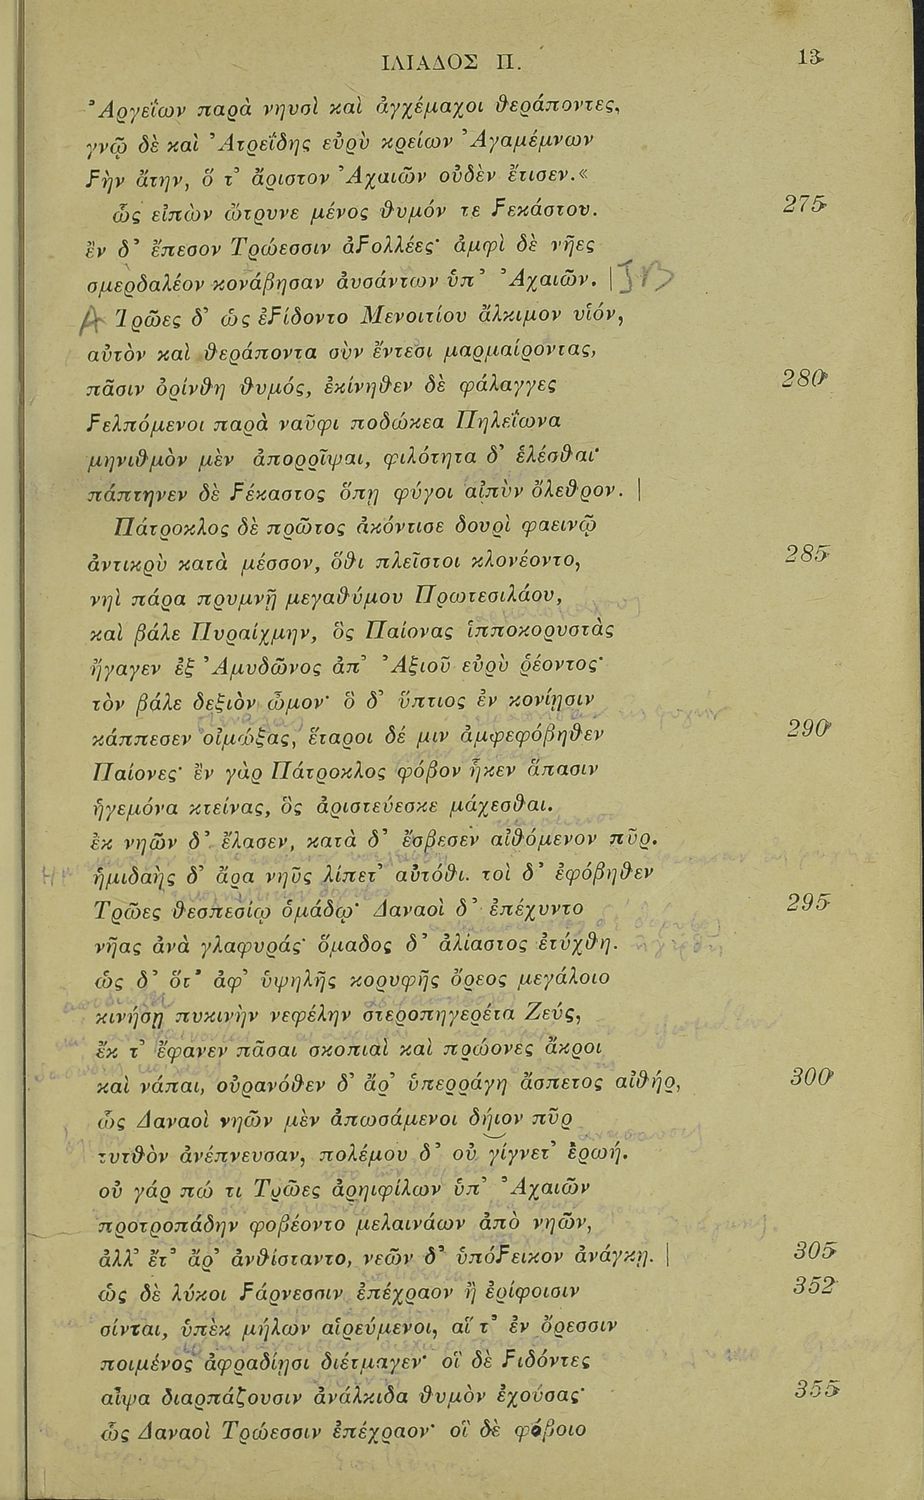 ΙΛΙΑΔΟΣ Π. 13
Ἀργείων παρὰ νηυσὶ καὶ ἀγχέμαχοι θεράποντες,
γνῷ δὲ καὶ Ἀτρεΐδης εὐρὺ κρείων Ἀγαμέμνων
ϝὴν ἄτην, ὅ τ’ ἄριστον Ἀχαιῶν οὐδὲν ἔτισεν.«
ὣς εἰπὼν ὤτρυνε μένος θυμόν τε ϝεκάστου. 275
ἐν δ’ ἔπεσον Τρώεσσιν ἀϝολλέες· ἀμφὶ δὲ νῆες
σμερδαλέον κονάβησαν ἀυσάντων ὑπ’ Ἀχαιῶν. |
Τρῶες δ’ ὡς ἐϝίδοντο Μενοιτίου ἄλκιμον υἱόν,
αὐτὸν καὶ θεράποντα σὺν ἔντεσι μαρμαίροντας,
πᾶσιν ὀρίνθη θυμός, ἐκίνηθεν δὲ φάλαγγες 280
ϝελπόμενοι παρὰ ναῦφι ποδώκεα Πηλεΐωνα
μηνιθμὸν μὲν ἀπορρῖψαι, φιλότητα δ’ ἑλέσθαι·
πάπτηνεν δὲ ϝέκαστος ὅπῃ φύγοι αἰπὺν ὄλεθρον. |
Πάτροκλος δὲ πρῶτος ἀκόντισε δουρὶ φαεινῷ
ἀντικρὺ κατὰ μέσσον, ὅθι πλεῖστοι κλονέοντο, 285
νηὶ πάρα πρυμνῇ μεγαθύμου Πρωτεσιλάου,
καὶ βάλε Πυραίχμην, ὃς Παίονας ἱπποκορυστὰς
ἤγαγεν ἐξ Ἀμυδῶνος ἀπ’ Ἀξιοῦ εὐρὺ ῥέοντος·
τὸν βάλε δεξιὸν ὦμον· ὃ δ’ ὕπτιος ἐν κονίῃσιν
κάππεσεν οἰμώξας, ἕταροι δέ μιν ἀμφεφόβηθεν 290
Παίονες· ἐν γὰρ Πάτροκλος φόβον ἧκεν ἅπασιν
ἡγεμόνα κτείνας, ὃς ἀριστεύεσκε μάχεσθαι.
ἐκ νηῶν δ’ ἔλασεν, κατὰ δ’ ἔσβεσεν αἰθόμενον πῦρ.
ἡμιδαὴς δ’ ἄρα νηῦς λίπετ’ αὐτόθι. τοὶ δ’ ἐφόβηθεν
Τρῶες θεσπεσίῳ ὁμάδῳ· Δαναοὶ δ’ ἐπέχυντο 295
νῆας ἀνὰ γλαφυράς· ὅμαδος δ’ ἀλίαστος ἐτύχθη.
ὡς δ’ ὅτ’ ἀφ’ ὑψηλῆς κορυφῆς ὄρεος μεγάλοιο
κινήσῃ πυκινὴν νεφέλην στεροπηγερέτα Ζεύς,
ἔκ τ’ ἔφανεν πᾶσαι σκοπιαὶ καὶ πρώονες ἄκροι
καὶ νάπαι, οὐρανόθεν δ’ ἄρ’ ὑπερράγη ἄσπετος αἰθήρ, 300
ὣς Δαναοὶ νηῶν μὲν ἀπωσάμενοι δήιον πῦρ
τυτθὸν ἀνέπνευσαν, πολέμου δ’ οὐ γίγνετ’ ἐρωή.
οὐ γάρ πώ τι Τρῶες ἀρηιφίλων ὑπ’ Ἀχαιῶν
προτροπάδην φοβέοντο μελαινάων ἀπὸ νηῶν,
ἀλλ’ ἔτ’ ἄρ’ ἀνθίσταντο, νεῶν δ’ ὑπόϝεικον ἀνάγκῃ. | 305
ὡς δὲ λύκοι ϝάρνεσσιν ἐπέχραον ἢ ἐρίφοισιν 352
σίνται, ὑπὲκ μήλων αἱρεύμενοι, αἵ τ’ ἐν ὄρεσσιν
ποιμένος ἀφραδίῃσι διέτμαγεν· οἳ δὲ ϝιδόντες
αἶψα διαρπάζουσιν ἀνάλκιδα θυμὸν ἐχούσας· 355
ὣς Δαναοὶ Τρώεσσιν ἐπέχραον· οἳ δὲ φόβοιο